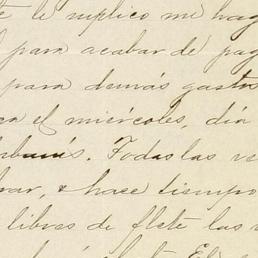 te le suplico me hag
para acabar de pag
para demás gastos
el miércoles, día
Todas las ve
hace tiempo
libras de flete las